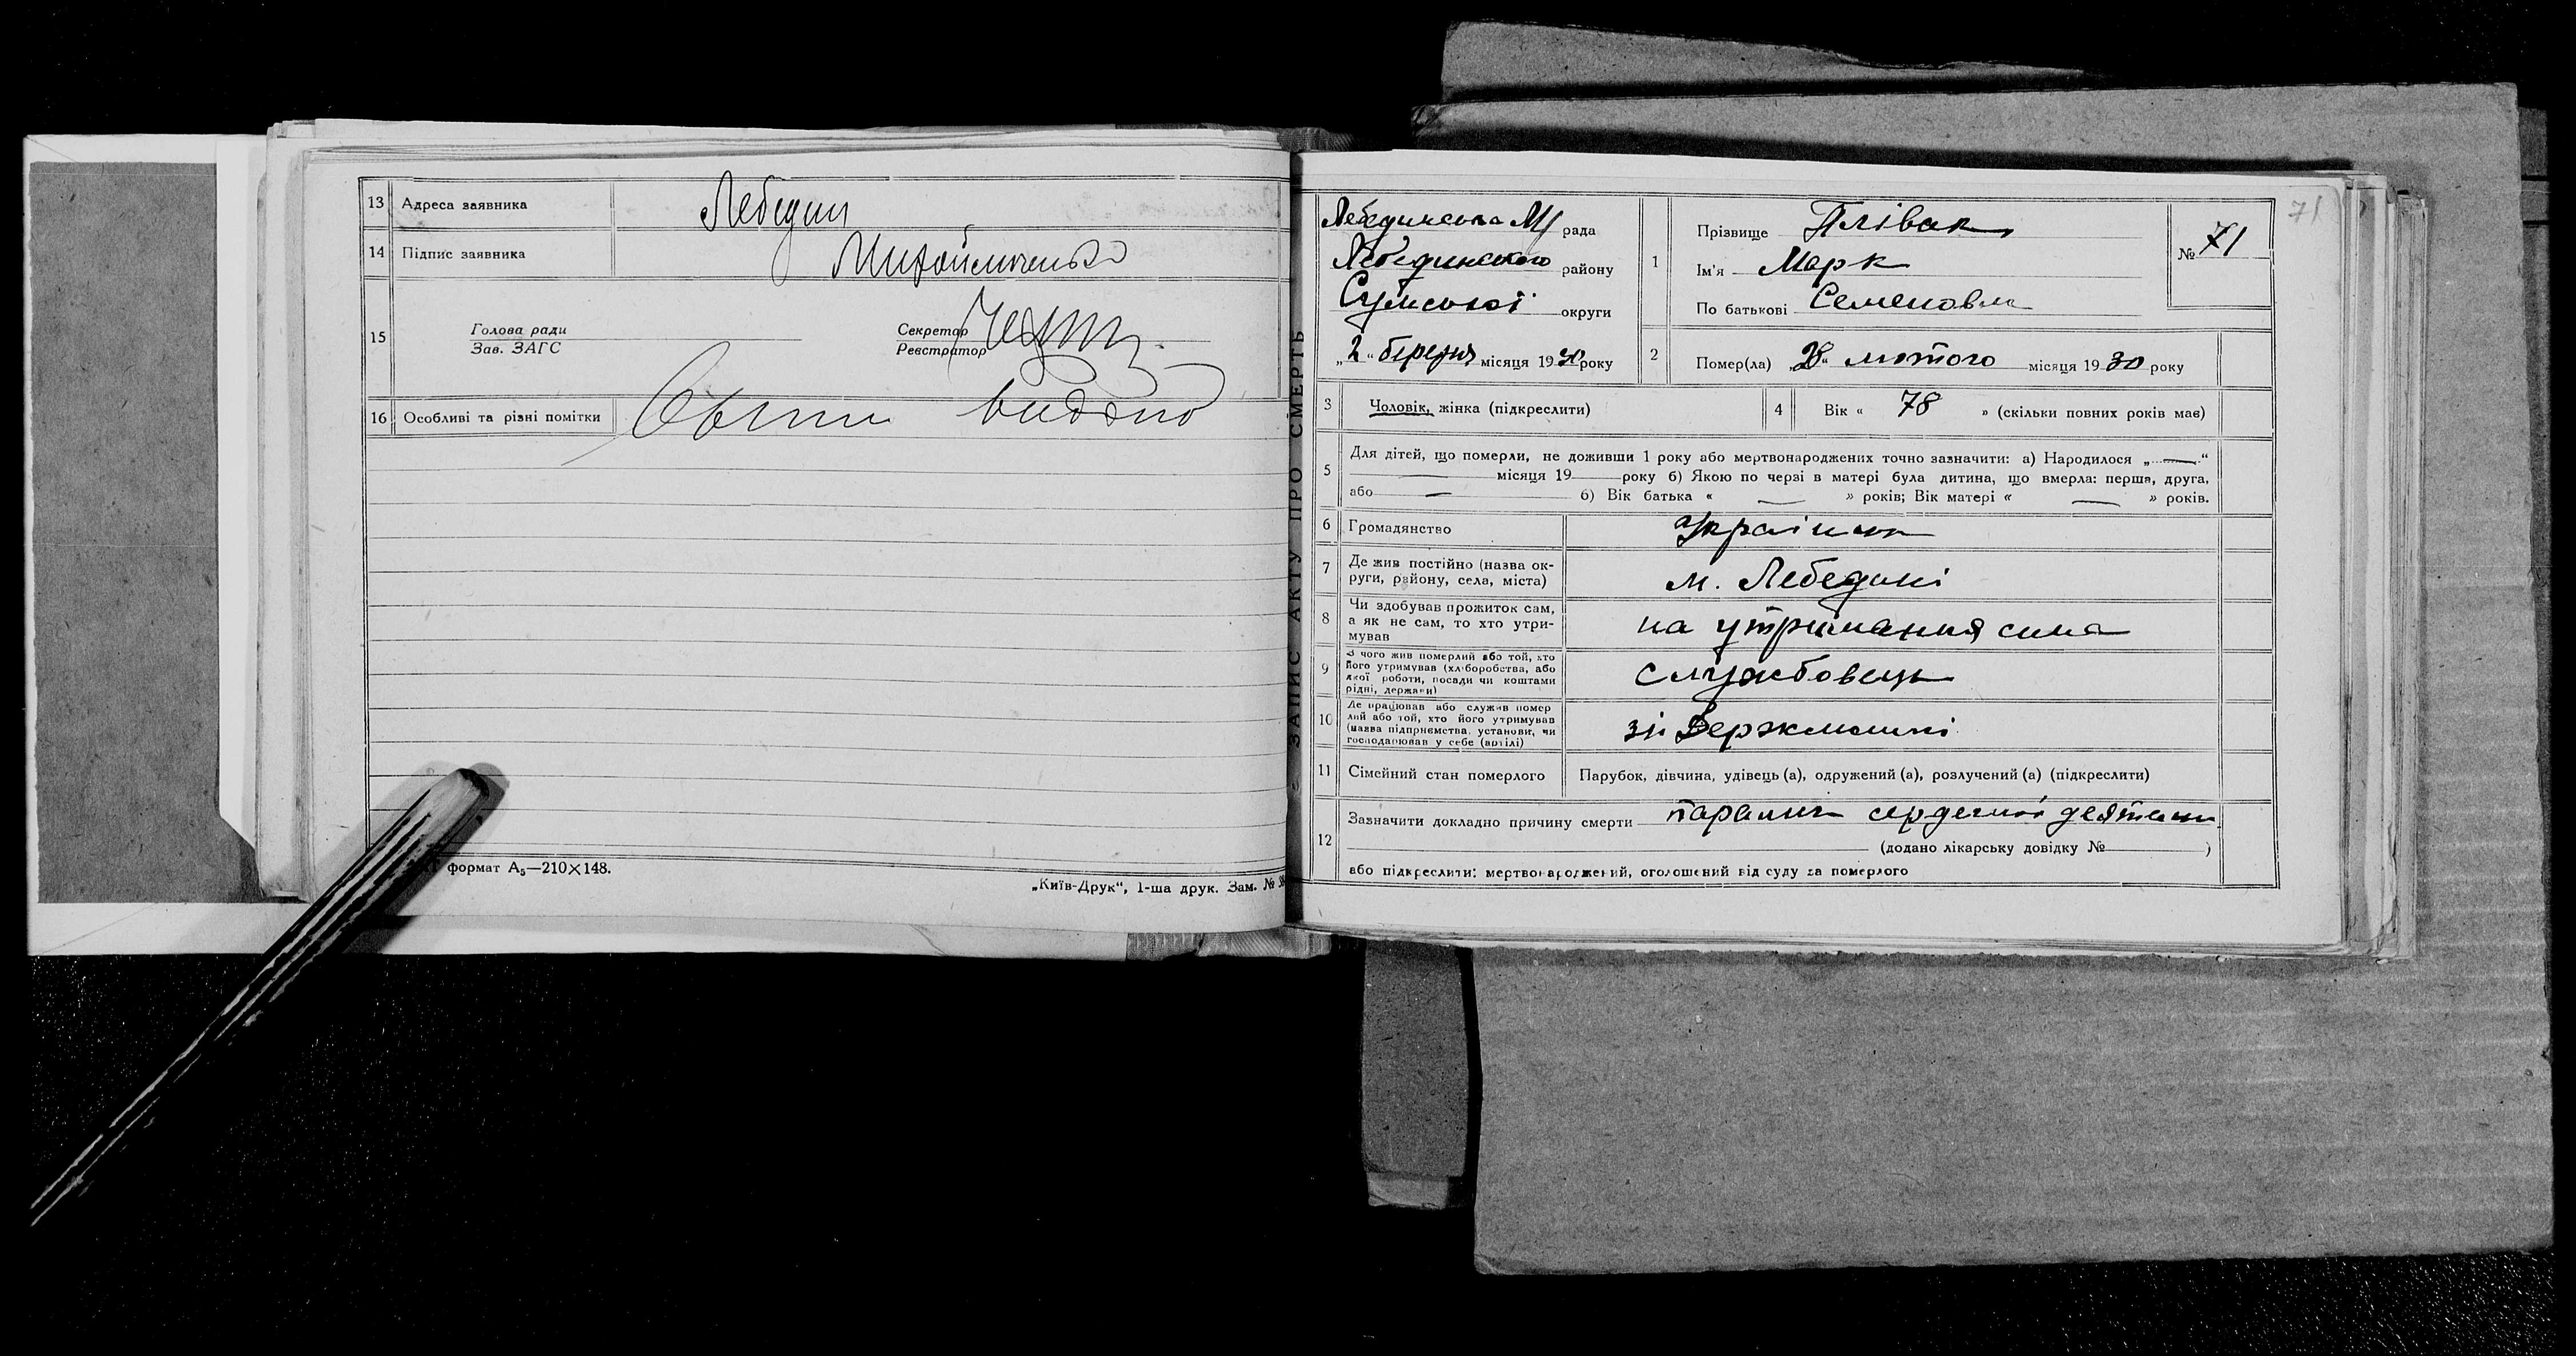 13 Адреса заявника Лебедин
14 Підпис заявника
15 Голова ради
Зав. ЗАГС
Секретар
Реєстратор
16 Особливі та різні помітки видано
формат А₅—210×148.
„Київ-Друк“, 1-ша друк. Зам. №
ЗАПИС АКТУ ПРО СМЕРТЬ
71
Лебединська М/ рада
Лебединського району
Сумської округи
„2“ березня місяця 1930 року
1 Прізвище Плівак
Ім'я Марк
По батькові Семенович
№ 71
2 Помер(ла) „28“ лютого місяця 1930 року
3 Чоловік, жінка (підкреслити)
4 Вік « 78 » (скільки повних років має)
5 Для дітей, що померли, не доживши 1 року або мертвонароджених точно зазначити: а) Народилося „ — “
— місяця 19 — року б) Якою по черзі в матері була дитина, що вмерла: перша, друга,
або — б) Вік батька « — » років; Вік матері « — » років.
6 Громадянство Українець
7 Де жив постійно (назва ок-
руги, району, села, міста) м. Лебедині
8 Чи здобував прожиток сам,
а як не сам, то хто утри-
мував на утримання сина
9 З чого жив померлий або той, хто
його утримував (хліборобства, або
якої роботи, посади чи коштами
рідні, держави) службовець
10 Де працював або служив помер
лий або той, хто його утримував
(назва підприємства, установи, чи
господарював у себе (артілі)
11 Сімейний стан померлого Парубок, дівчина, удівець (а), одружений (а), розлучений (а) (підкреслити)
12 Зазначити докладно причину смерти паралич сердечної деятельн.
(додано лікарську довідку № )
або підкреслити: мертвонароджений, оголошений від суду за померлого